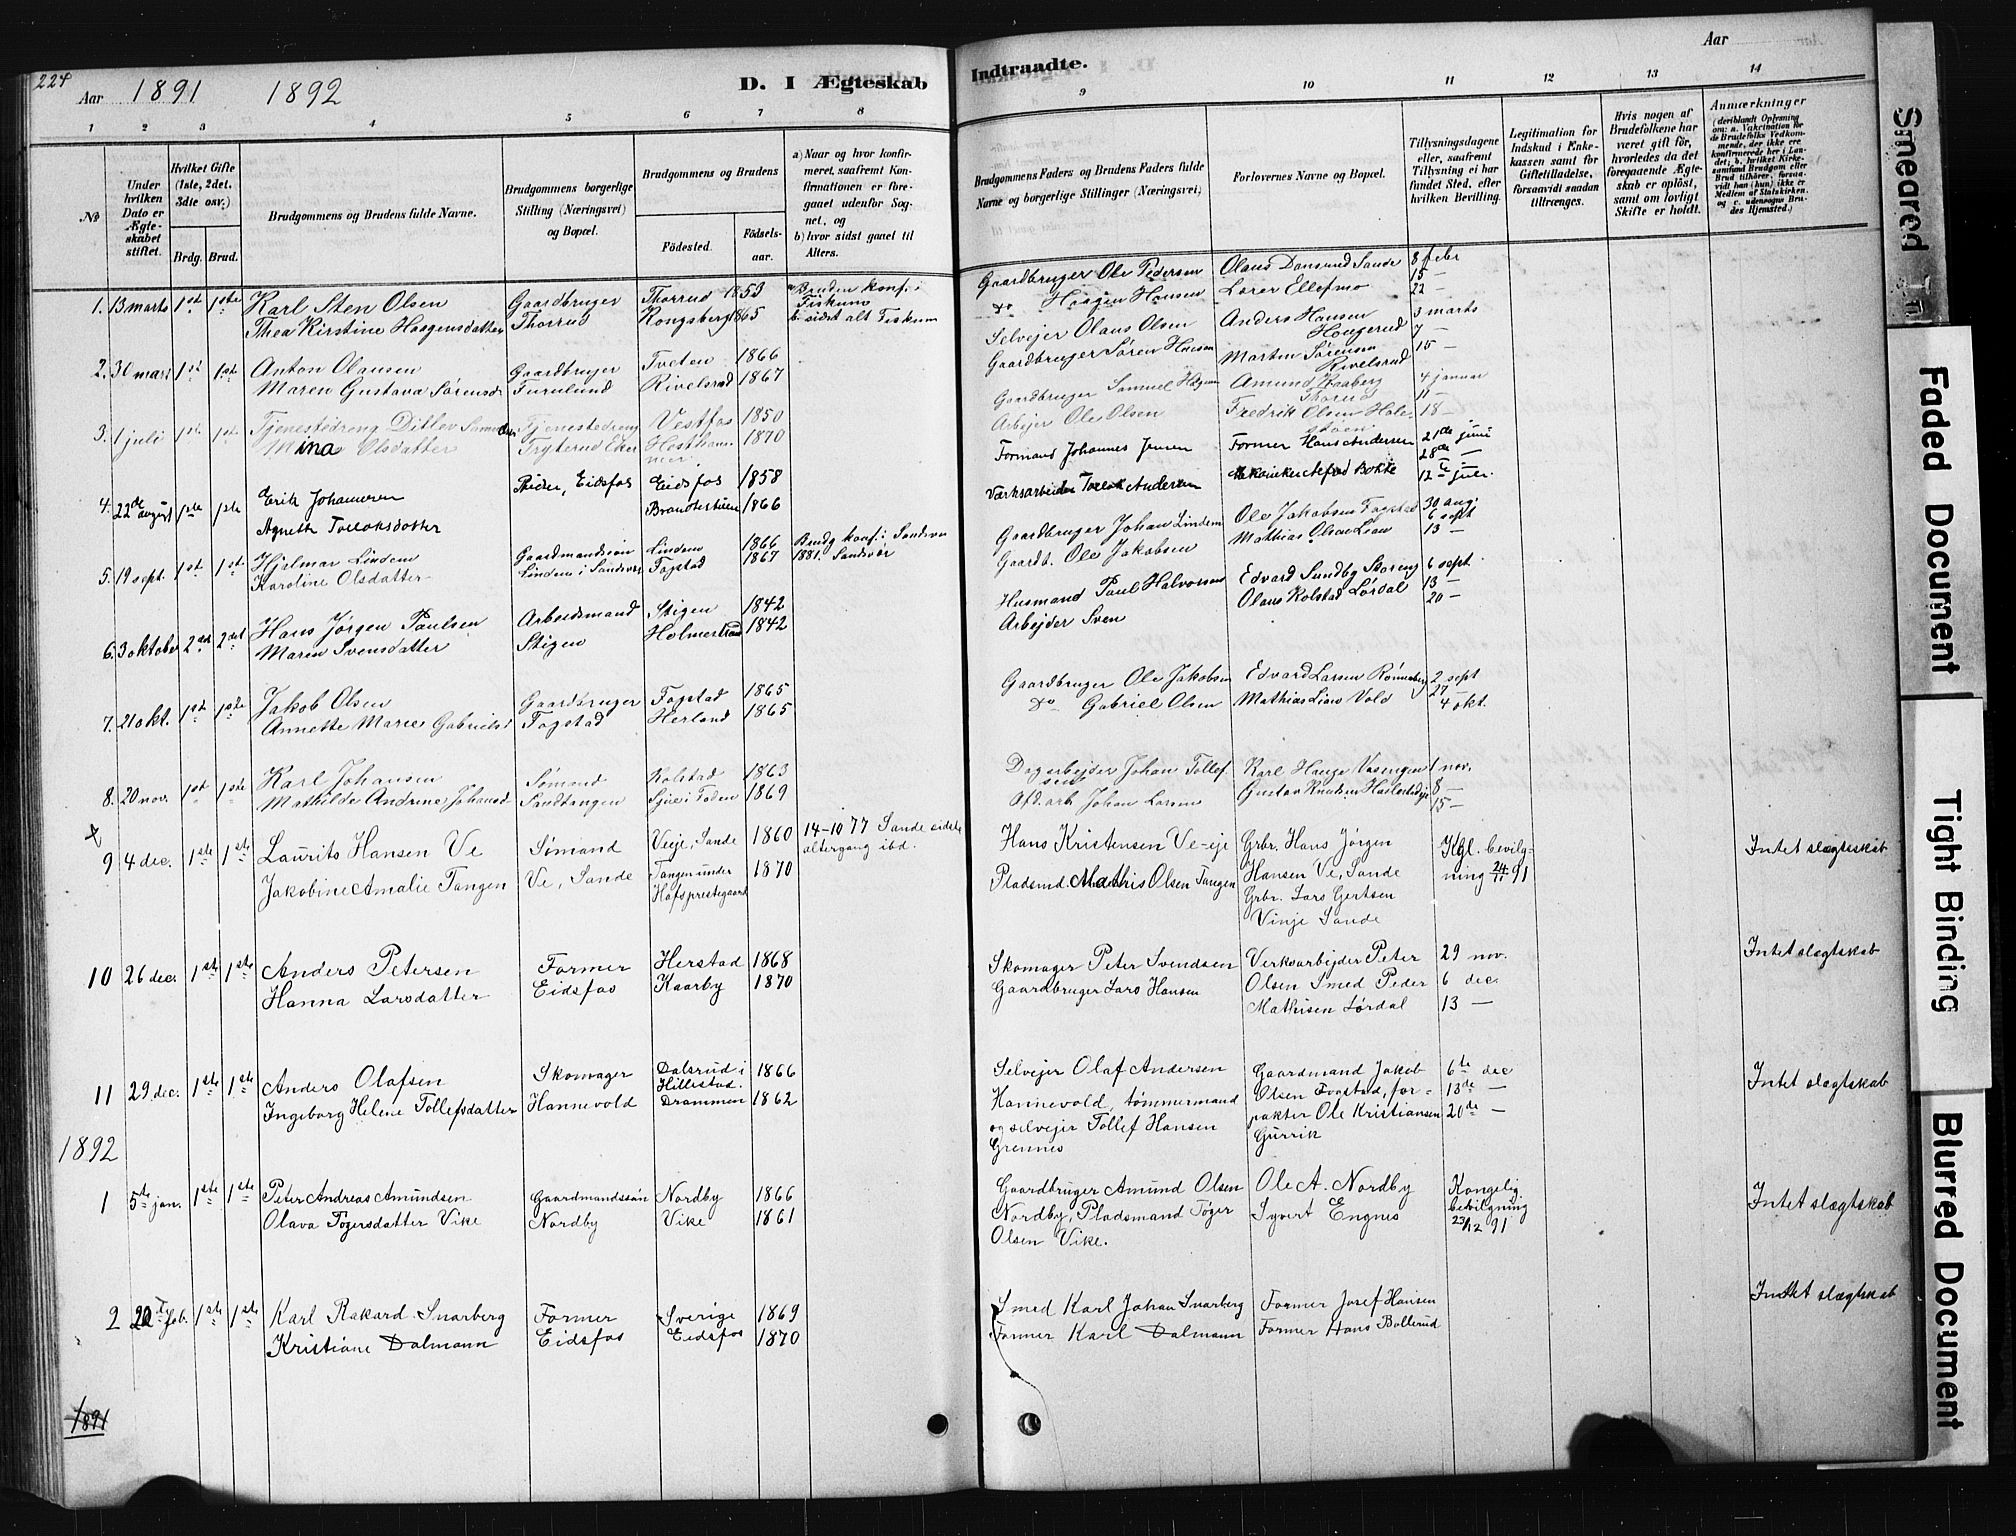 224
Aar 1891 1892
D. I Ægteskab
1 2 3 4 5 6 7 8
No
Under hvilken Dato er Ægteskabet stiftet.
Hvilket Gifte (1ste, 2det, 3die osv.)
Brdg. Brud.
Brudgommens og Brudens fulde Navne.
Brudgommens borgerlige Stilling (Næringsvei) og Bopæl.
Brudgommens og Brudens
Födested. Födselsaar.
a) Naar og hvor konfirmeret, saafremt Konfirmationen er foregaaet udenfor Sognet, og
b) hvor sidst gaaet til Alters.
1. 13 marts 1ste 1ste Karl Sten Olsen Gaardbruger Thorrud 1853 a Bruden konf. i Fiskum
Thea Kirstine Haagensdatter Thorrud Kongsberg 1865 b. sidst alt Fiskum
2. 30 mars 1st 1st Anton Olausen Gaardbruger Tveten 1866
Maren Gustava Sørensd Furulund Rivelsrud 1867
3. 1 juli 1ste 1st Tjenestedreng Ditlev Tjenestedreng Vestfos 1850
Mina Olsdatter Eker 1870
4. 22de august 1ste 1ste Erik Johannesen Eidsfos Eidsfos 1858
Agnethe Torlaksdatter 1866
5. 19 sept. 1st 1st Hjalmar Lindem Gaardmandssøn Lindem 1866 Brudg konf. i Sandsver
Karoline Olsdatter Lindem i Sandsver Fogstad 1867 1881. Sandsver
6. 3 oktober 2det 2det Hans Jørgen Paulsen Arbeidsmand Stigen 1842
Maren Svensdatter Stigen Holmestrand 1842
7. 21 okt. 1ste 1ste Jakob Olsen Gaardbruger Fogstad 1865
Annette Marie Gabrielsd Fogstad Herland 1865
8. 20 nov. 1st 1ste Karl Johansen Sømand Kolstad 1863
Mathilde Andrine Johansd Sandtangen 1869
9 4 dec. 1ste 1ste Laurits Hansen Ve Sømand Veije, Sande 1860 14-10 77 Sande sidste altergang ibd.
Jakobine Amalie Tangen Ve, Sande Tangen under Hofs prestegaard 1870
10 26 dec. 1ste 1ste Anders Petersen Former Herstad 1868
Hanna Larsdatter Eidsfos Kaarby 1870
11 29 dec. 1ste 1ste Anders Olafsen Skomager Dalsrud i Hillestad 1866
Ingeborg Helene Tollefsdatter Hannevold Drammen 1862
1892
1 5te jan. 1ste 1ste Peter Andreas Amundsen Gaardmandssøn Nordby 1866
Olava Togersdatter Vike Nordby Vike 1861
2 feb. 1ste 1ste Karl Rakard Snarberg Former Sverige 1869
Kristiane Dalmann Eidsfos Eidsfos 1870
1891
Indtraadte.
Aar
9 10 11 12 13 14
Brudgommens Faders og Brudens Faders fulde Navne og borgerlige Stillinger (Næringsvei)
Forlovernes Navne og Bopæl.
Tillysningsdagene eller, saafremt Tillysning ei har fundet Sted, efter hvilken Bevilling.
Legitimation for Indskud i Enkekassen samt for Giftetilladelse, forsaavidt saadan tiltrænges.
Hvis nogen af Brudefolkene har været gift för, hvorledes da det foregaaende Ægteskab er oplöst, samt om lovligt Skifte er holdt.
Anmærkninger (deriblandt Oplysning om: a. Vakcination for de Brudefolks Vedkommende, der ikke ere konfirmerede her i Landet; b. hvilket Kirkesamfund Brudgom eller Brud tilhörer, forsaavidt han (hun) ikke er Medlem af Statskirken, og c. udensogns Brudes Hjemsted.)
Gaardbruger Ole Pedersen Olaus Dansrud Sande 8 febr
do Haagen Hansen Lorer Ellefmo 15 —
22 —
Selveier Olaus Olsen Anders Hansen Haugerud 3 marts
7 —
Gaardbruger Søren Hansen Martin Sørensen Rivelsrud 15 —
Gaardbruger Samuel Amund Thorud 4 januar
11 —
Arbejder Ole Olsen Fredrik Olsen 18 —
Formand Johannes Jensen Former Hans Andersen 21de juni
28de —
Værksarbeider Torlak Andersen Mekaniker Alfred 12te juli.
Gaardbruger Johan Lindem Ole Jakobsen Fogstad 30 aug.
6 sept
Gaardb. Ole Jakobsen Mathias Olsen Lian 13 —
Husmand Paul Halvorsen Edvard Sundby Storeng 6 sept.
13 —
Arbejder Sven Olaus Kolstad Lørdal 20 —
Gaardbruger Ole Jakobsen Edvard Larsen Rønneberg 2 sept
27 —
do Gabriel Olsen Mathias Lian Vold 4 okt.
Dagarbejder Johan Tollefsen Karl Hauge Vasengen 1 nov.
Johan Larsen Gustav Knutsen 8 —
15 —
Hans Kristensen Ve-eje Grbr. Hans Jørgen Kgl. bevilg- Intet slægtskab
Pladsmd. Mathis Olsen Tangen Hansen Ve, Sande ning 24/11 91
Grbr. Lars Gertsen
Vinje Sande
Skomager Peter Svendsen Verksarbejder Peter 29 nov. Intet slægtskab
Gaardbruger Lars Hansen Olsen Smed Peder 6 dec.
Mathisen Lørdal 13 —
Selvejer Olaf Andersen Gaardmand Jakob 6te dec Intet slægtskab
Hannevold, tømmermand Olsen Fogstad, for- 13de —
og selvejer Tollef Hansen pakter Ole Kristiansen 20de —
Grennes Gurrik
Gaardbruger Amund Olsen Ole A. Nordby Kongelig Intet slægtskab
Nordby, Pladsmand Toger Syvert Engnes bevilgning
Olsen Vike. 23/12 91
Smed Karl Johan Snarberg Former Josef Hansen Intet slægtskab
Former Karl Dalmann Former Hans Bollerud
Smeared T
Faded Document
Tight Binding
Blurred Document